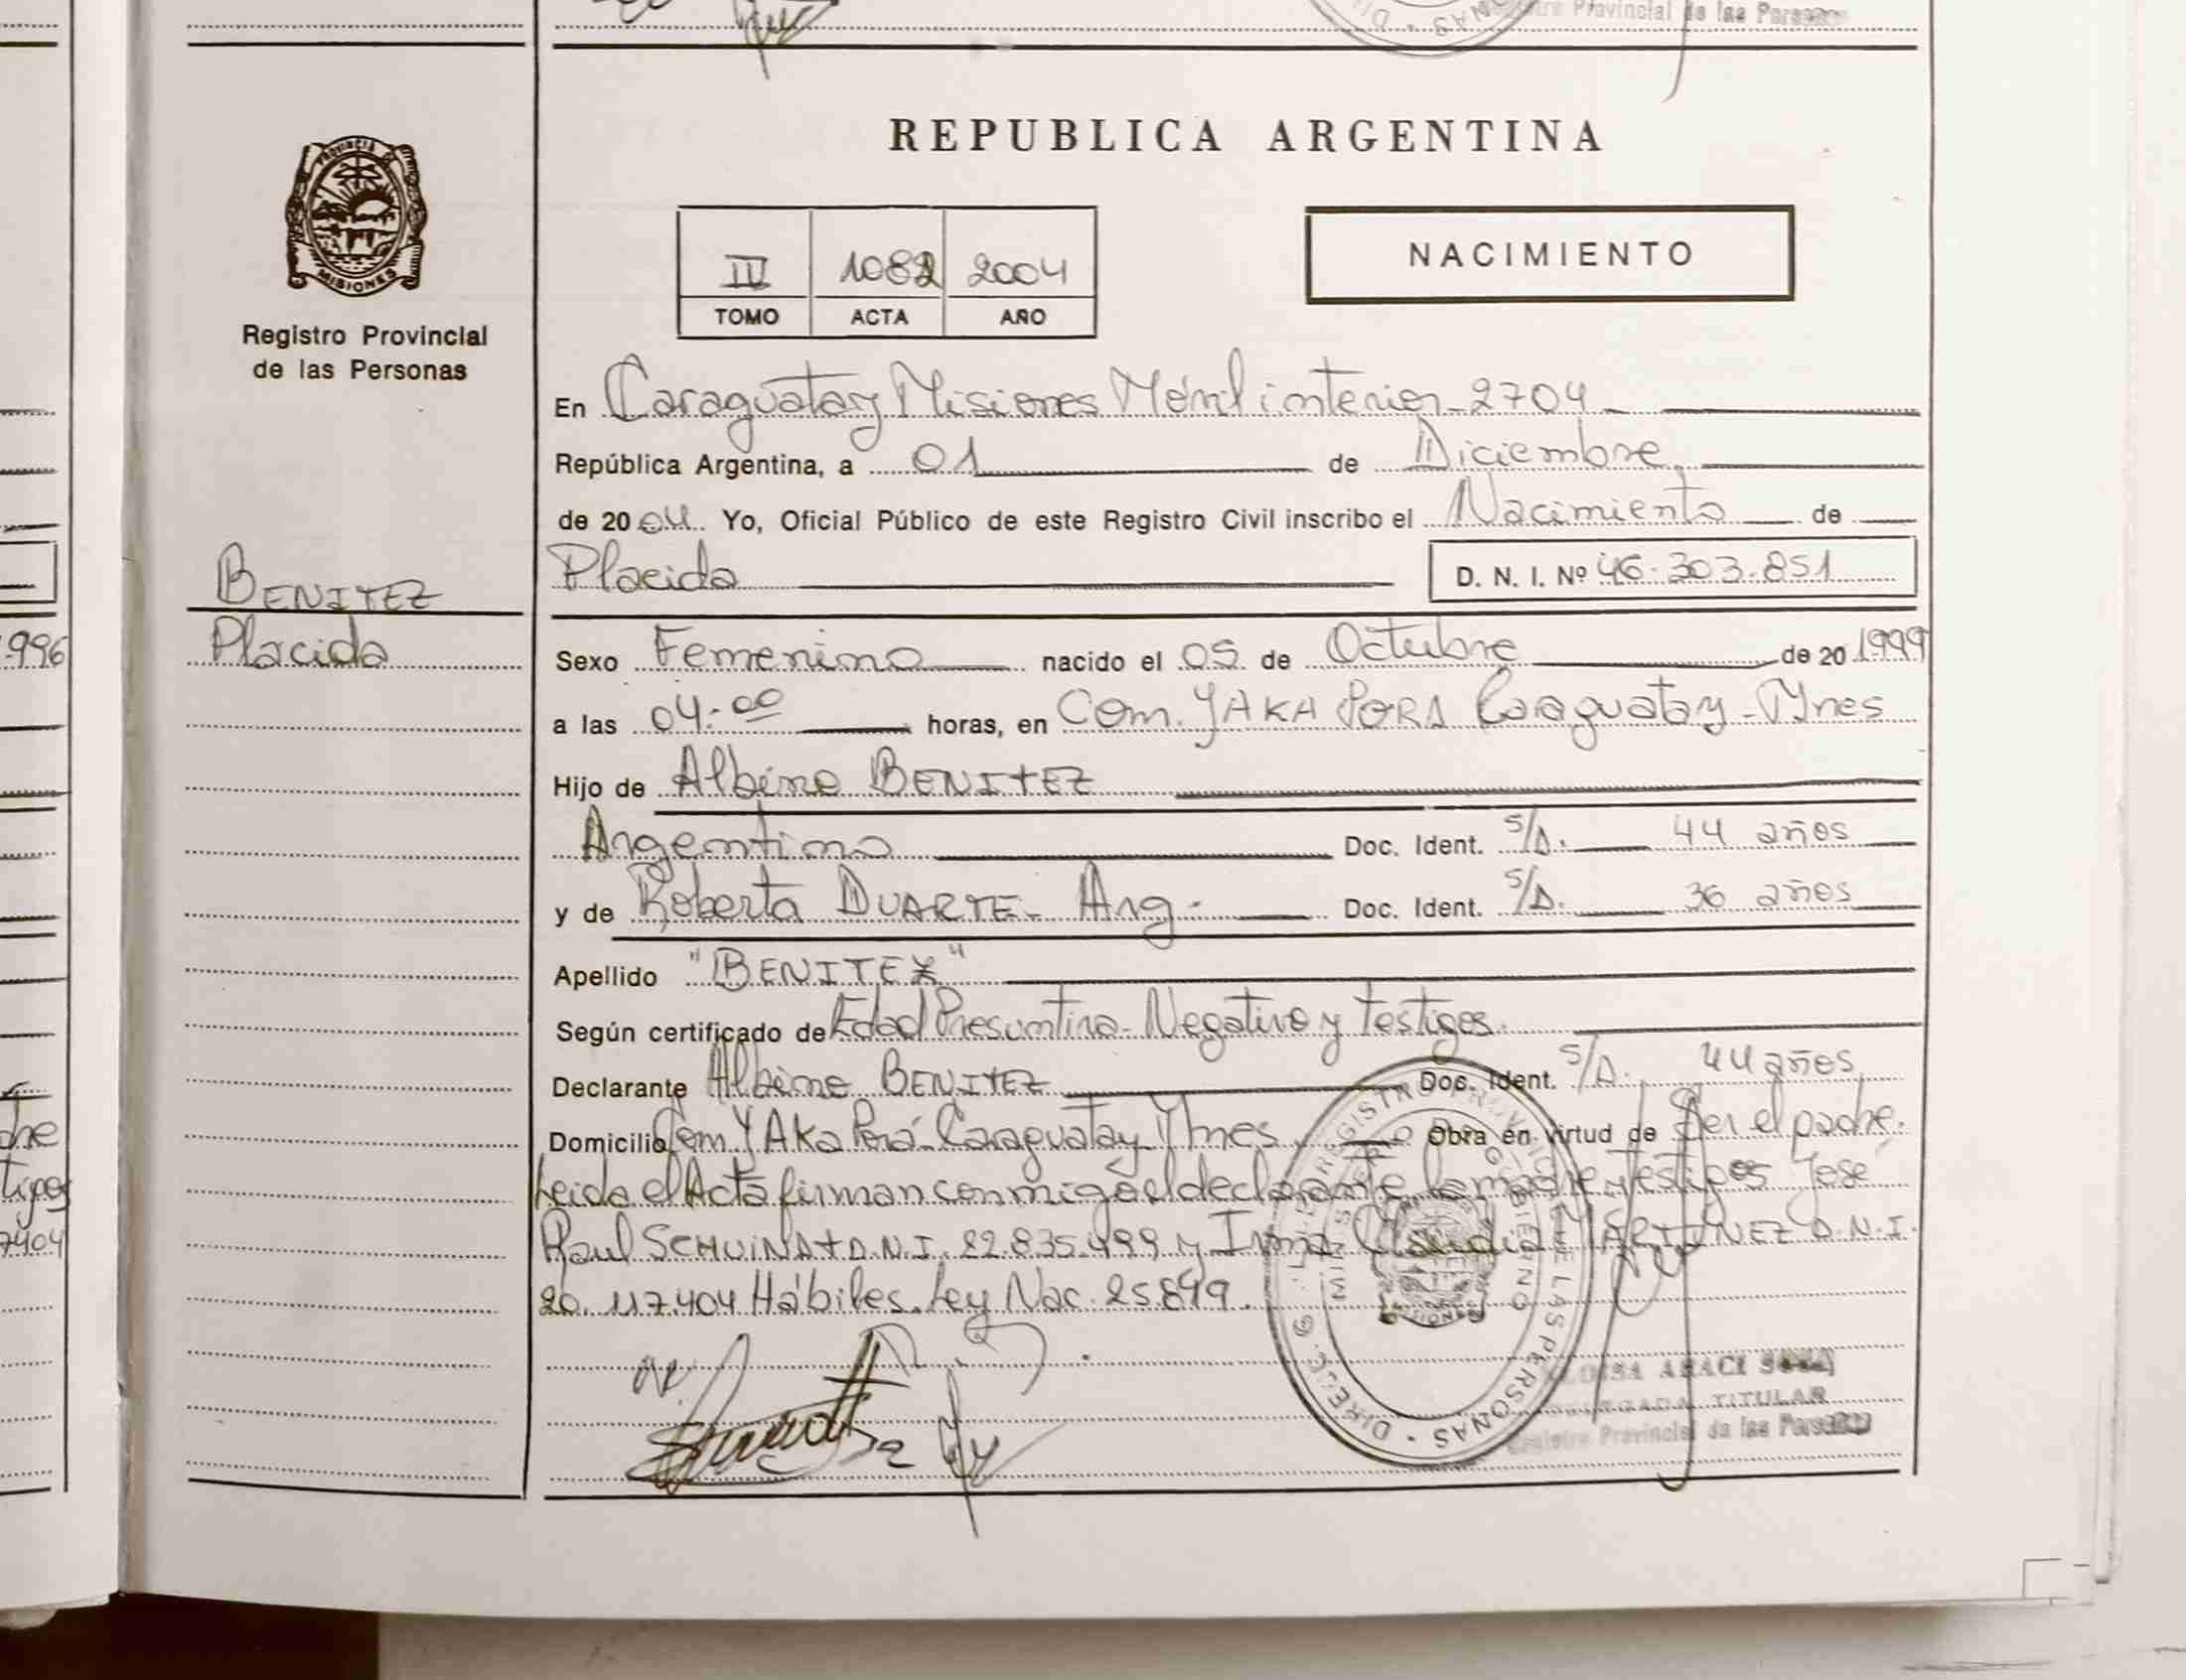 Registro Provincial de las Personas
REPUBLICA ARGENTINA
PROVINCIA DE
MISIONES
Registro Provincial
de las Personas
IV 1082 2004
TOMO ACTA AÑO
NACIMIENTO
En Caraguatay Misiones Móvil interior - 2704
República Argentina, a 01 de Diciembre
de 2004 Yo, Oficial Público de este Registro Civil inscribo el Nacimiento de
Placida D. N. I. Nº 46.303.851
BENITEZ
Placida
Sexo Femenino nacido el 05 de Octubre de 20 1999
a las 04:00 horas, en Com. YAKA PORA Caraguatay - Mnes
Hijo de Albino BENITEZ
Argentino Doc. Ident. S/D. 44 años
y de Roberta DUARTE - Arg. Doc. Ident. S/D. 36 años
Apellido "BENITEZ"
Según certificado de Edad Presuntiva - Negativo y testigos.
Declarante Albino BENITEZ Doc. Ident. S/D. 44 años
Domicilio Com YAKA Porá - Caraguatay Mnes Obra en virtud de Ser el padre.
Leida el Acta firman conmigo el declarante, la madre y testigos José
Raul D.N.I. 22.835.499 y Irma Claudia MARTINEZ D.N.I.
20.117.404 Hábiles. Ley Nac. 25.819.
ARACI
DELEGADA TITULAR
Registro Provincial de las Personas
996
dre
tigos
7404